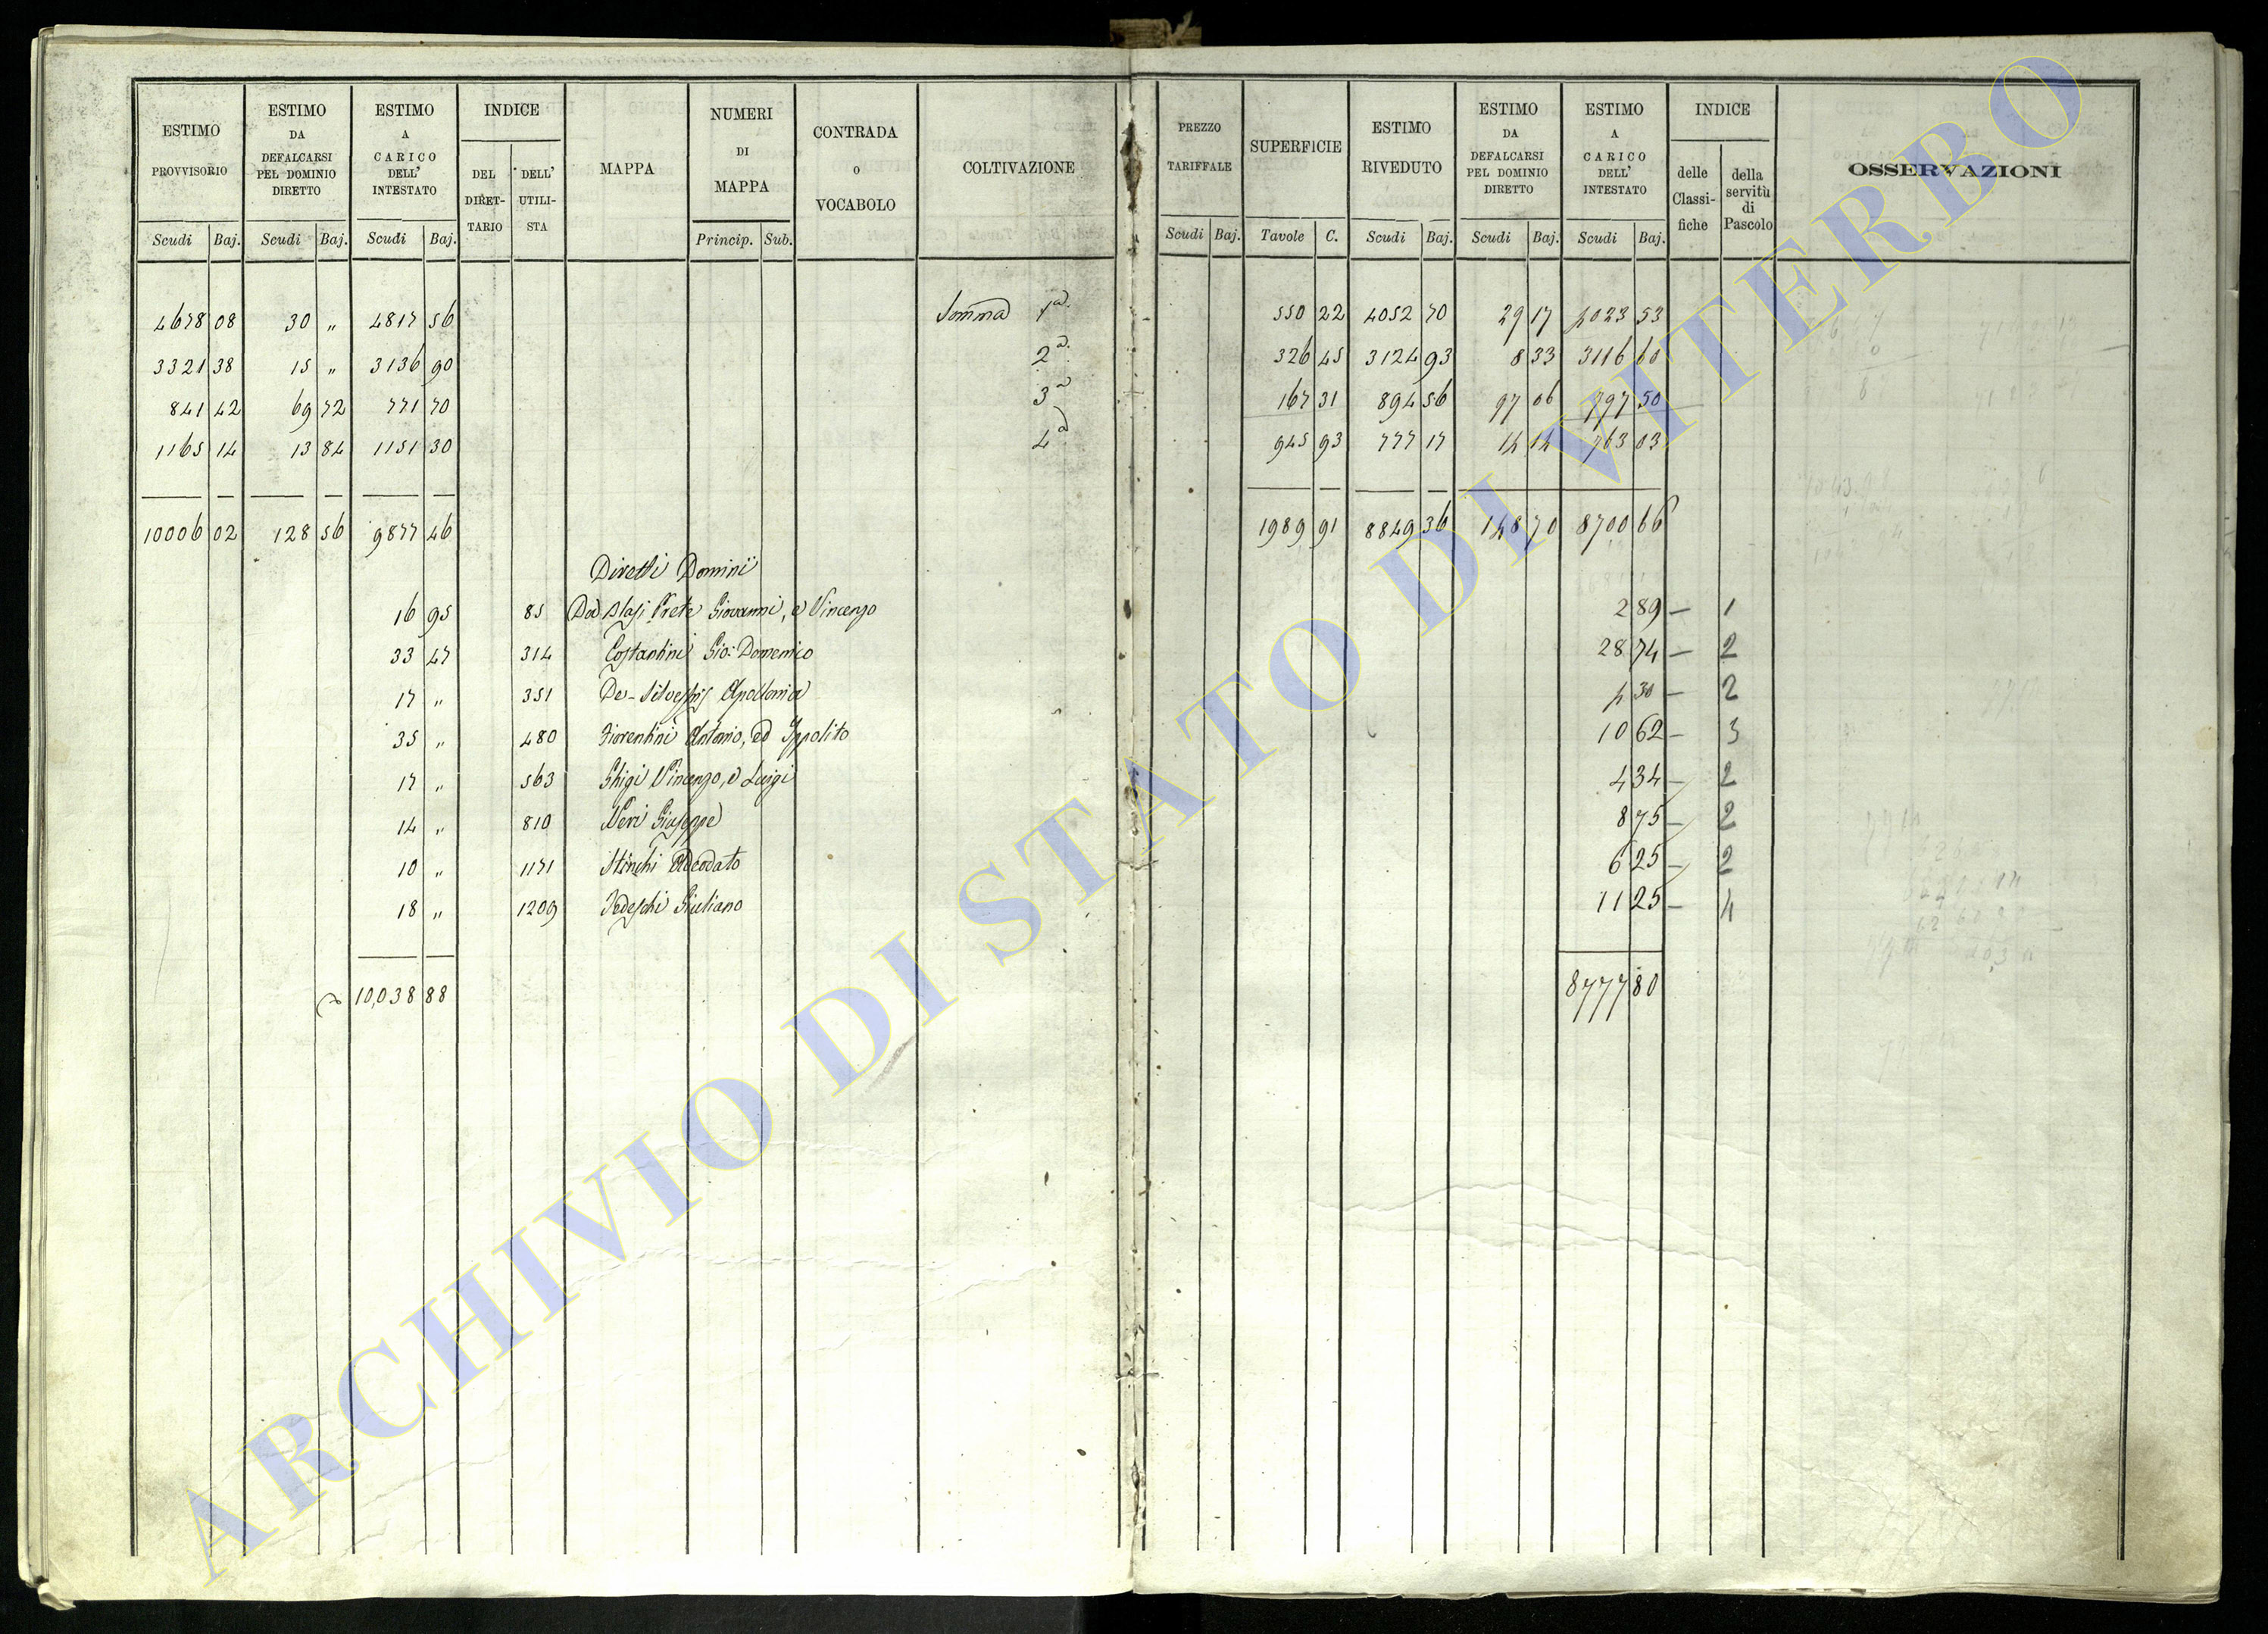 ESTIMO PROVVISORIO | ESTIMO DA DEFALCARSI PEL DOMINIO DIRETTO | ESTIMO A CARICO DELL' INTESTATO | INDICE | MAPPA | NUMERI DI MAPPA | CONTRADA o VOCABOLO | COLTIVAZIONE | PREZZO TARIFFALE | SUPERFICIE | ESTIMO RIVEDUTO | ESTIMO DA DEFALCARSI PEL DOMINIO DIRETTO | ESTIMO A CARICO DELL' INTESTATO | INDICE | OSSERVAZIONI
DEL DIRET-TARIO | DELL' UTILI-STA | delle Classi-fiche | della servitù di Pascolo
Scudi | Baj. | Scudi | Baj. | Scudi | Baj. | Princip. | Sub. | Scudi | Baj. | Tavole | C. | Scudi | Baj. | Scudi | Baj. | Scudi | Baj.
4678 08 | 30 „ | 4817 56 | Somma 1a. | 550 22 | 4052 70 | 29 17 | 4023 53
3321 38 | 15 „ | 3136 90 | 2a. | 326 45 | 3124 93 | 8 33 | 3116 60
841 42 | 69 72 | 771 70 | 3a | 167 31 | 894 56 | 97 06 | 797 50
1165 14 | 13 84 | 1151 30 | 4a | 945 93 | 777 17 | 14 14 | 763 03
10006 02 | 128 56 | 9877 46 | 1989 91 | 8849 36 | 148 70 | 8700 66
Diretti Dominii
16 95 | 85 | De Blasj Prete Giovanni, e Vincenzo | 2 89 — 1
33 47 | 314 | Costantini Gio: Domenico | 28 74 — 2
17 „ | 351 | De-Silvestris Apollonia | 4 30 — 2
35 „ | 480 | Fiorentini Antonio, ed Ippolito | 10 62 — 3
17 „ | 563 | Ghigi Vincenzo, e Luigi | 4 34 — 2
14 „ | 810 | Neri Giuseppe | 8 75 — 2
10 „ | 1171 | Stinchi Adeodato | 6 25 — 2
18 „ | 1209 | Tedeschi Giuliano | 11 25 — 4
10,038 88 | 8777 80
ARCHIVIO DI STATO DI VITERBO